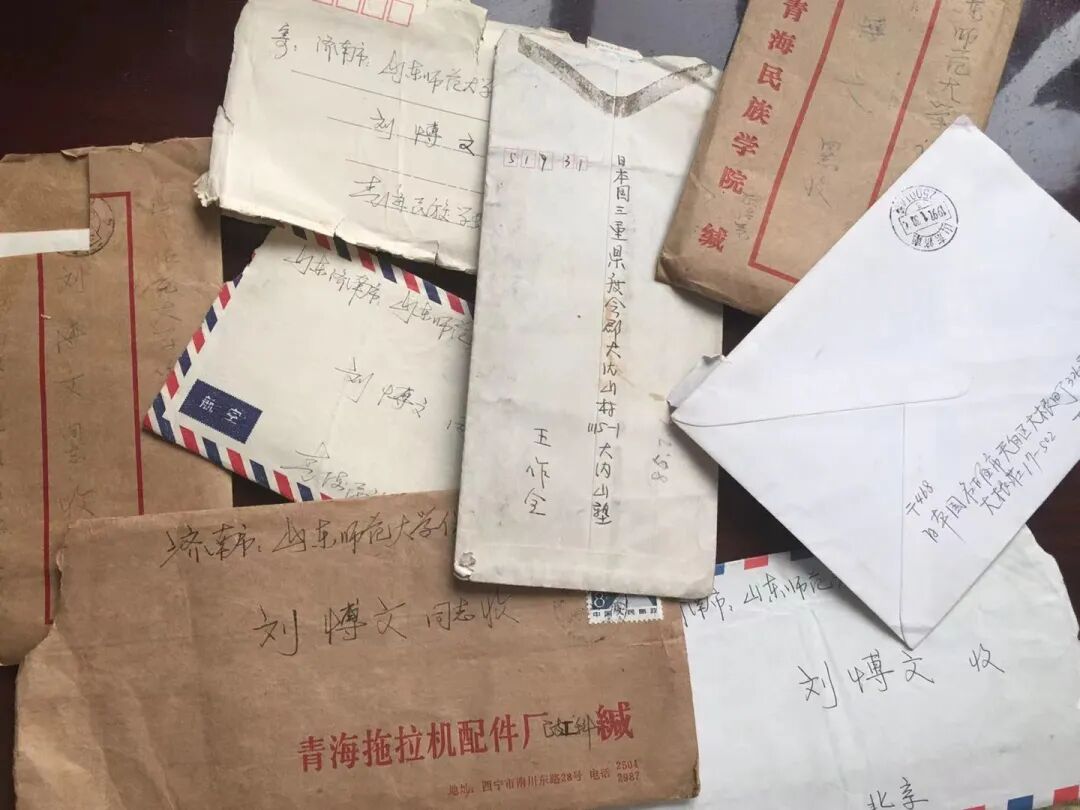 寄：济南市：山东师范大学
刘博文
51931
日本国三重県度会郡大内山村
115-1 大内山塾
王作全
85.7
青海民族学院 缄
师范大学
文
山东济南
1997.1
〒468
日本国名古屋市天白区大根町
大根荘17-502
刘
文
同志
收
山东济南市：山东师范
刘博文
航空
济南市：山东师范大学
刘博文 同志收
8
中国人民邮政
青海拖拉机配件厂 缄
地址：西宁市南川东路28号 电话 2504
2987
南市：山东师范
刘博文 收
北京